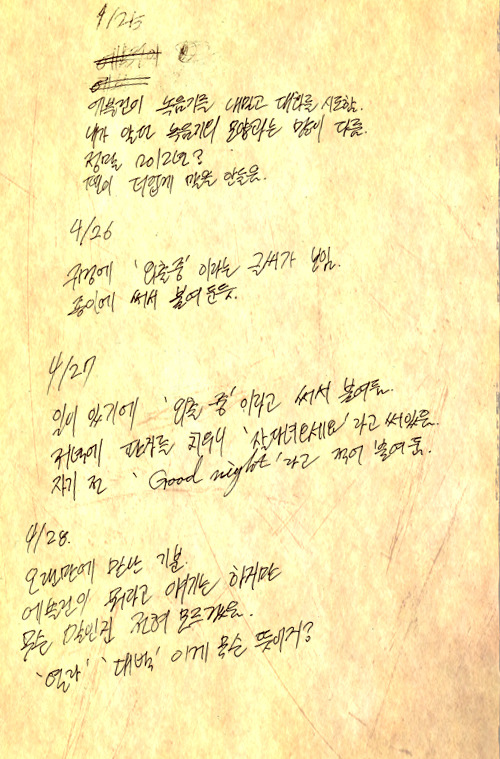 4/25
에복건이 녹음기를 내밀고 대화를 시도함.
내가 알던 녹음기의 모양과는 많이 다름.
정말 2012년?
더럽게 말을 안들음.
4/26
'외출중' 이라는 글씨가 보임.
종이에 써서 붙여둔듯.
4/27
일이 있기에 '외출 중'이라고 써서 붙여둠.
저녁에 판자를 치우니 '잘다녀오세요'라고 써있음.
자기 전 'Good night'라고 적어 붙여 둠.
4/28.
오랜만에 만난 기분.
에복건이 뭐라고 얘기는 하지만
무슨 말인진 전혀 모르겠음.
'열라' '대박' 이게 무슨 뜻이지?